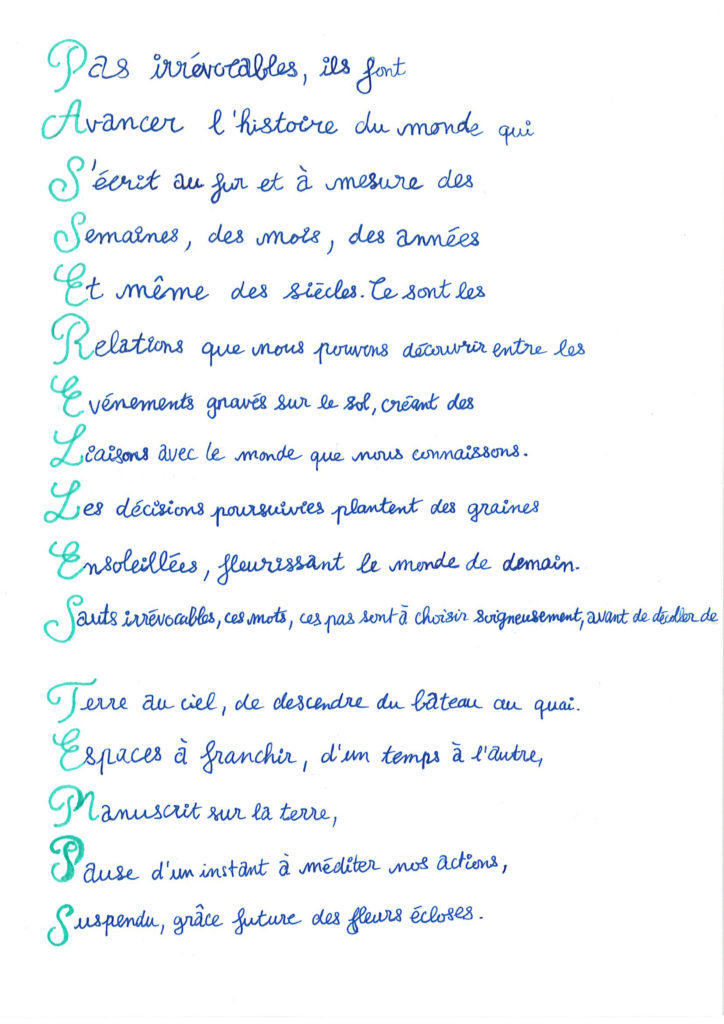 Pas irrévocables, ils font
Avancer l'histoire du monde qui
S'écrit au fur et à mesure des
Semaines, des mois, des années
Et même des siècles. Ce sont les
Relations que nous pouvons découvrir entre les
Evénements gravés sur le sol, créant des
Liaisons avec le monde que nous connaissons.
Les décisions poursuivies plantent des graines
Ensoleillées, fleurissant le monde de demain.
Sauts irrévocables, ces mots, ces pas sont à choisir soigneusement, avant de décoller de
Terre au ciel, de descendre du bateau au quai.
Espaces à franchir, d'un temps à l'autre,
Manuscrit sur la terre,
Pause d'un instant à méditer nos actions,
Suspendu, grâce future des fleurs écloses.